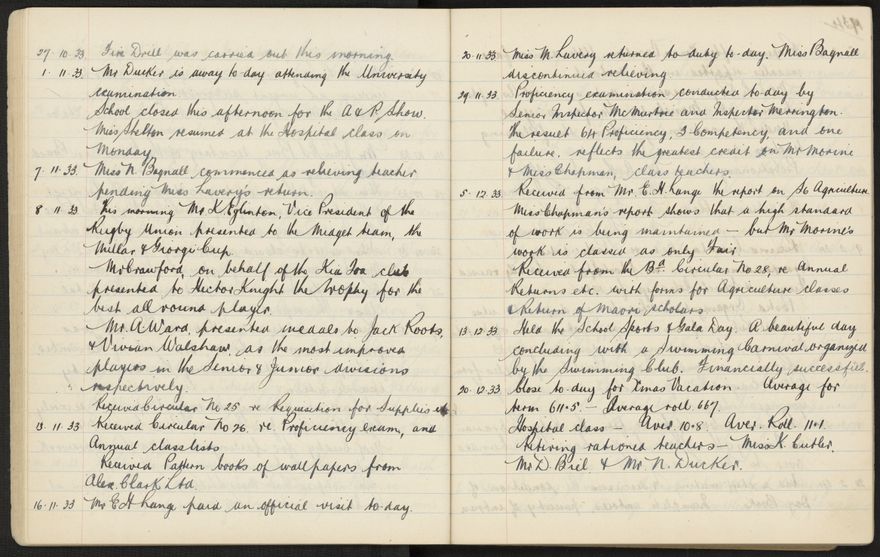 27. 10. 33 Fire Drill was carried out this morning.
1. 11. 33 Mr Ducker is away to day attending the University
examination
School closed this afternoon for the A & P. Show.
Miss Shelton resumed at the Hospital class on
Monday
7. 11. 33. Miss N. Bagnall commenced as relieving teacher
pending Miss Lavery's return.
8 11. 33 This morning Mr K Eglinton, Vice President of the
Rugby Union presented to the Midget team, the
Millar & Giorgi Cup.
Mr Crawford, on behalf of the Kia Toa club
presented to Hector Knight the trophy for the
best all round player.
Mr. A Ward, presented medals to Jack Roots,
& Vivian Walshaw, as the most improved
players in the Senior & Junior divisions
respectively.
Received Circular No 25 re Requisition for Supplies etc
13. 11. 33 Received Circular No 26. re. Proficiency exam, and
Annual class lists
Received Pattern books of wallpapers from
Alex. Clark Ltd.
16. 11. 33 Mr E H Lange paid an official visit to-day.
1934
20. 11. 33 Miss M. Lavery returned to duty to-day. Miss Bagnall
discontinued relieving
29. 11. 33 Proficiency examination conducted to-day by
Senior Inspector McMurtrie and Inspector Merrington.
The result 64 Proficiency, 3 Competency, and one
failure, reflects the greatest credit on Mr Morine
& Miss Chapman, class teachers.
5. 12. 33 Received from Mr. E. H. Lange the report on S6 Agriculture
Miss Chapman's report shows that a high standard
of work is being maintained – but Mr Morine's
work is classed as only Fair.
Received from the Bd. Circular No 28, re Annual
Returns etc. with forms for Agriculture classes
& Return of Maori scholars
13. 12. 33 Held the School Sports & Gala Day. A beautiful day
concluding with a Swimming Carnival organized
by the Swimming Club. Financially successful.
20. 12. 33 Close to-day for Xmas Vacation Average for
term 611.5. – Average roll 667.
Hospital class – Aver. 10.8 Aver. Roll. 11.1
Retiring rationed teachers – Miss K. Cutler.
Mr D. Biel & Mr N. Ducker.